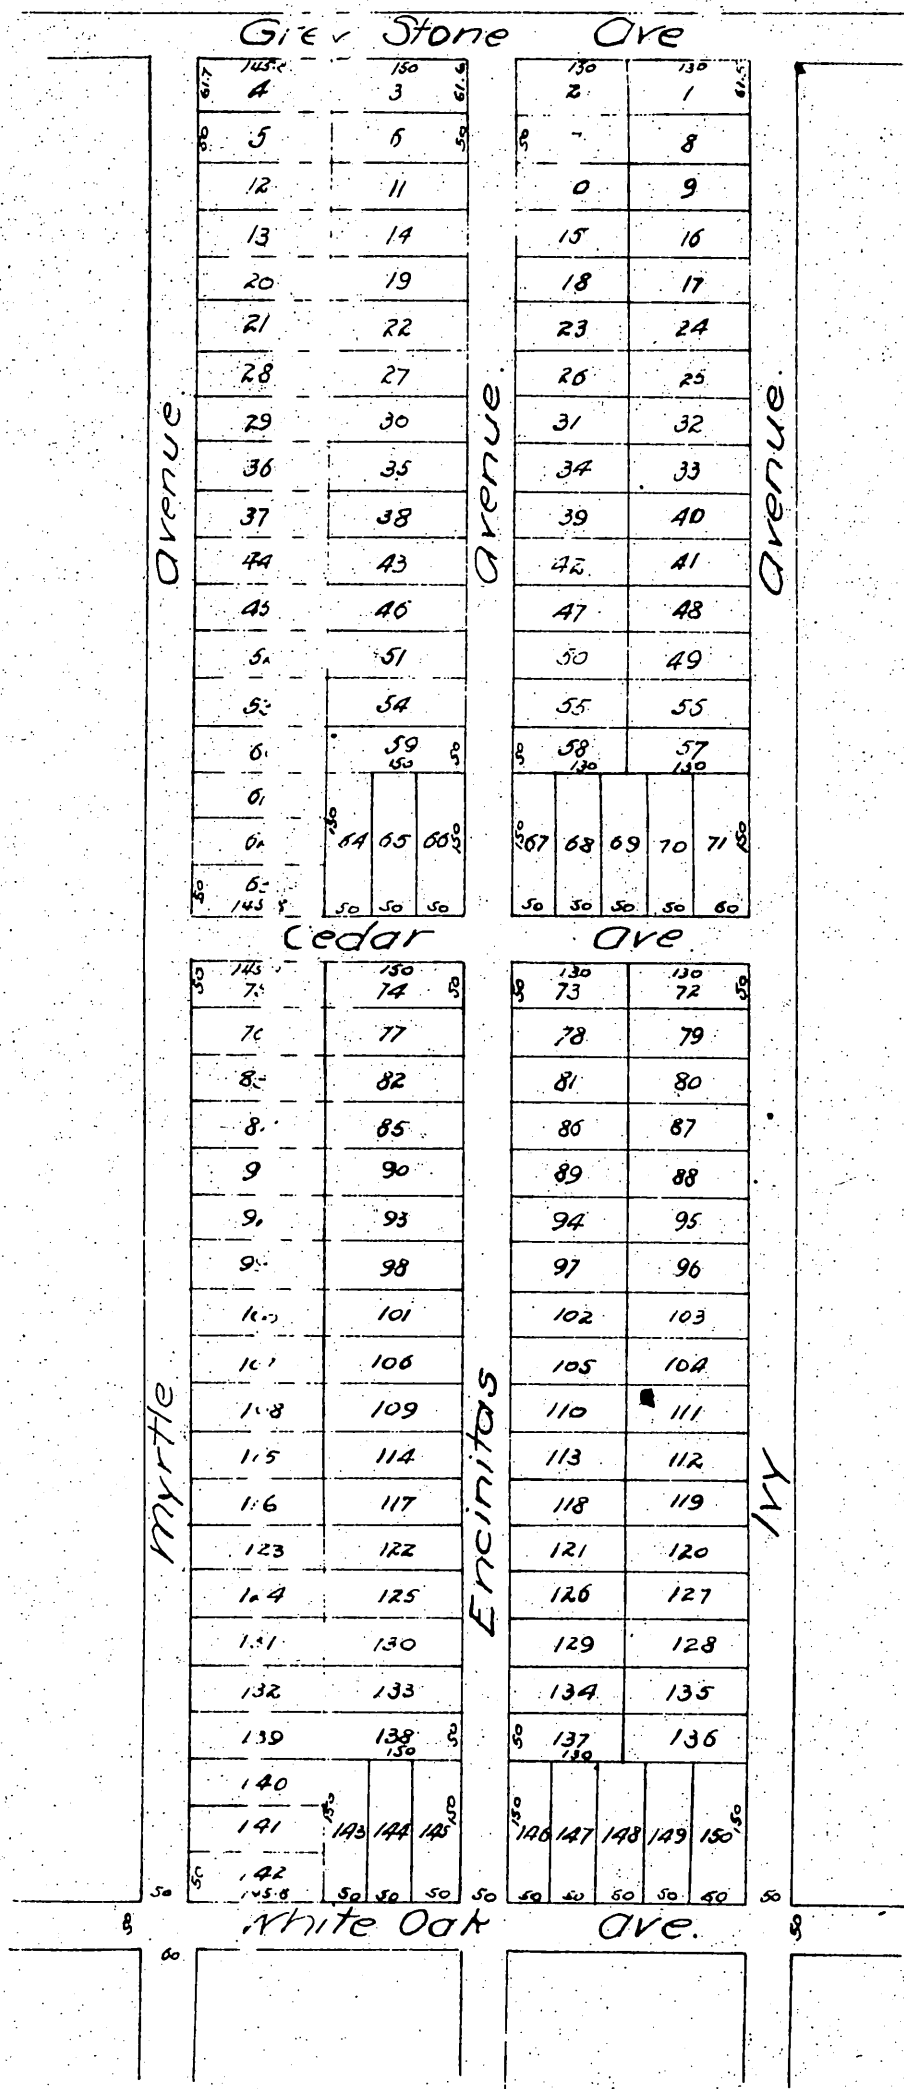 Stone Ave
61.7 150 61.6 130 130 61.5
4 3 2 1
50 5 6 50 50 8
12 11 0 9
13 14 15 16
20 19 18 17
21 22 23 24
28 27 26 25
29 30 31 32
36 35 34 33
37 38 39 40
44 43 42 41
45 46 47 48
51 50 49
54 55 55
59 50 50 58 57
150 130 130
150 64 65 66 150 150 67 68 69 70 71 150
50 50 50 50 50 50 50 50 60
Avenue.
Avenue.
Avenue.
Cedar Ave
50 150 50 50 130 130 50
74 73 72
77 78 79
82 81 80
85 86 87
90 89 88
93 94 95
98 97 96
101 102 103
106 105 104
109 110 111
114 113 112
117 118 119
123 122 121 120
125 126 127
130 129 128
132 133 134 135
139 138 50 50 137 136
150 130
140
141 150 143 144 145 150 150 146 147 148 149 150 150
50 142
50 145.8 50 50 50 50 50 50 50 50 60 50
Myrtle
Encinitas
Ivy
White Oak Ave.
50 50
60